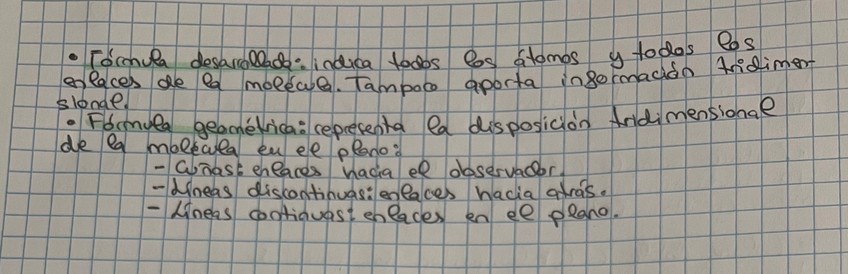 • Fórmula desarrollada: indica todos los átomos y todos los
enlaces de la molécula. Tampoco aporta información tridimen-
sional.
• Fórmula geométrica: representa la disposición tridimensional
de la molécula en el plano:
- Cuñas: enlaces hacia el observador.
- Líneas discontinuas: enlaces hacia atrás.
- Líneas continuas: enlaces en el plano.